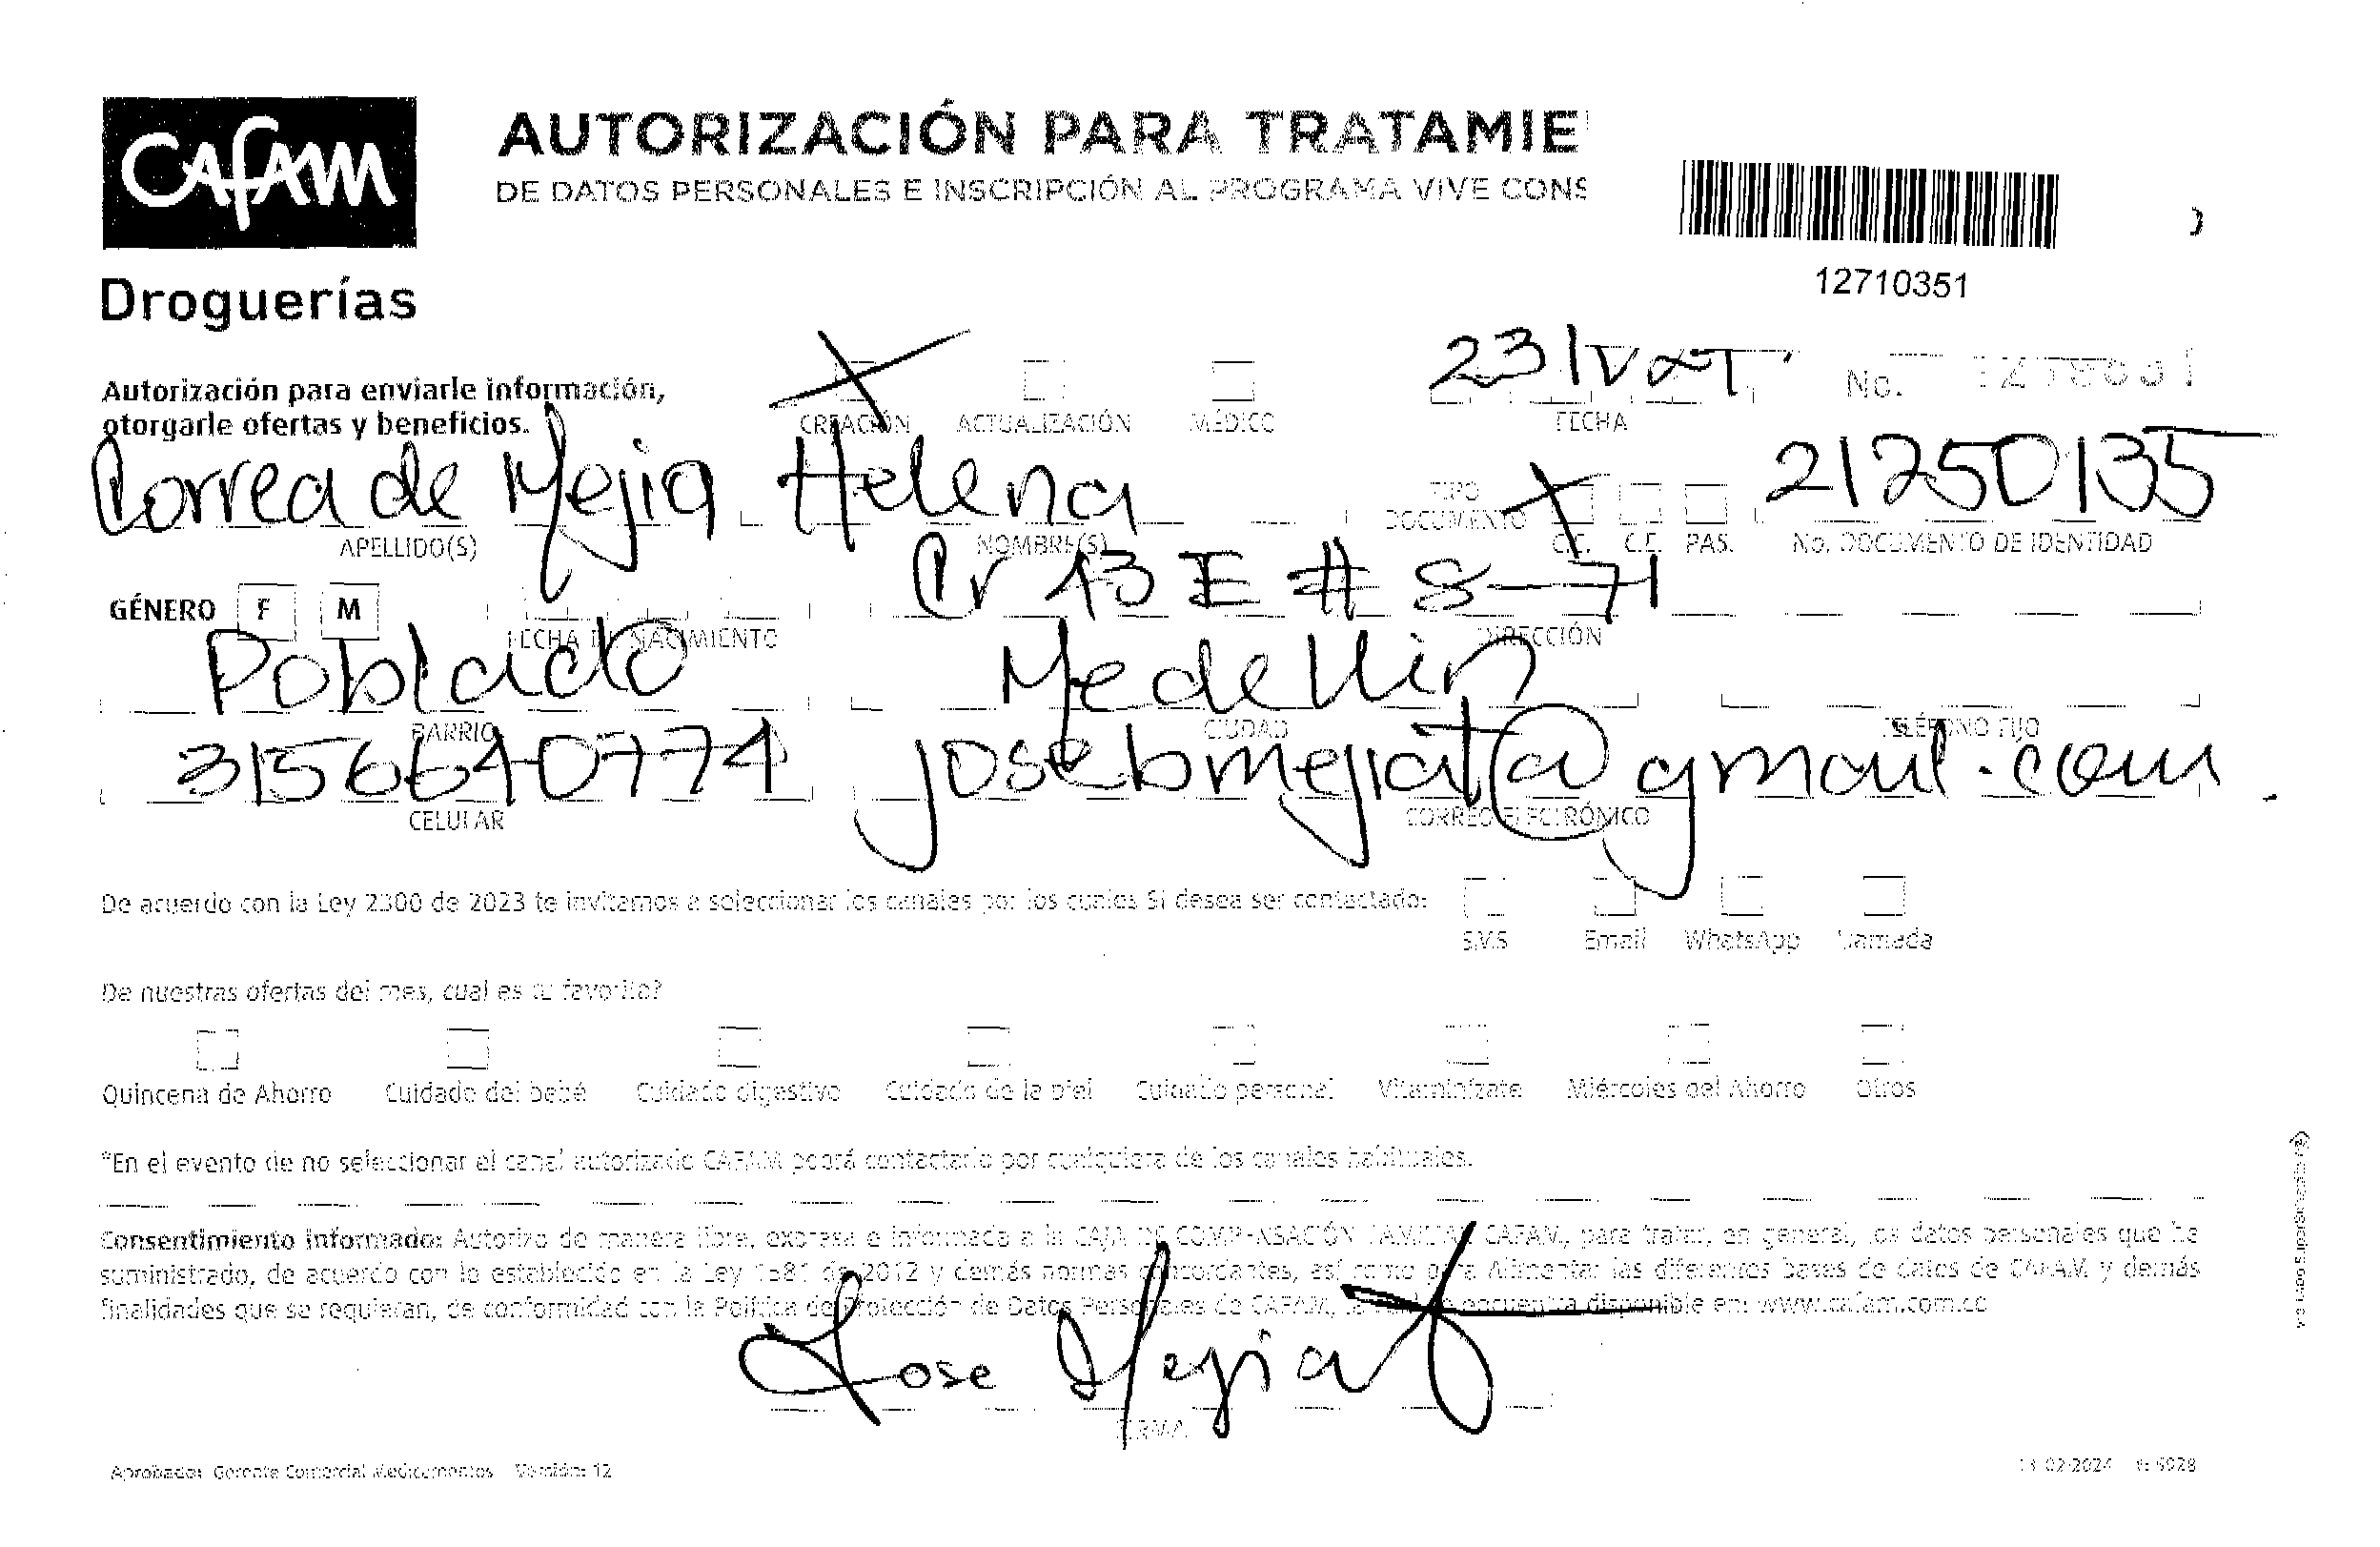 Cafam
AUTORIZACIÓN PARA TRATAMIE
DE DATOS PERSONALES E INSCRIPCIÓN AL PROGRAMA VIVE CONS
12710351
Droguerías
Autorización para enviarle información,
otorgarle ofertas y beneficios.
CREACIÓN ACTUALIZACIÓN MÉDICO FECHA No.
Correa de Mejia Helena 21250135
APELLIDO(S) NOMBRE(S) TIPO DOCUMENTO C.C. C.E. PAS. No. DOCUMENTO DE IDENTIDAD
Cr 43 E # 8-71
GÉNERO F M FECHA DE NACIMIENTO DIRECCIÓN
Poblado Medellin
BARRIO CIUDAD TELÉFONO FIJO
3156640774 josebmejiat@gmail.com.
CELULAR CORREO ELECTRÓNICO
De acuerdo con la Ley 2300 de 2023 te invitamos a seleccionar los canales por los cuales Si desea ser contactado:
SMS Email WhatsApp Llamada
De nuestras ofertas del mes, cual es tu favorito?
Quincena de Ahorro Cuidado del bebé Cuidado digestivo Cuidado de la piel Cuidado personal Vitaminízate Miércoles del Ahorro Otros
*En el evento de no seleccionar el canal autorizado CAFAM podrá contactarlo por cualquiera de los canales habituales.
Consentimiento informado: Autorizo de manera libre, expresa e informada a la CAJA DE COMPENSACIÓN FAMILIAR CAFAM, para tratar, en general, los datos personales que he
suministrado, de acuerdo con lo establecido en la Ley 1581 de 2012 y demás normas concordantes, así como para Alimentar las diferentes bases de datos de CAFAM y demás
finalidades que se requieran, de conformidad con la Política de Protección de Datos Personales de CAFAM, la cual se encuentra disponible en: www.cafam.com.co
Jose Mejia
FIRMA
Aprobado: Gerente Comercial Medicamentos Versión: 12